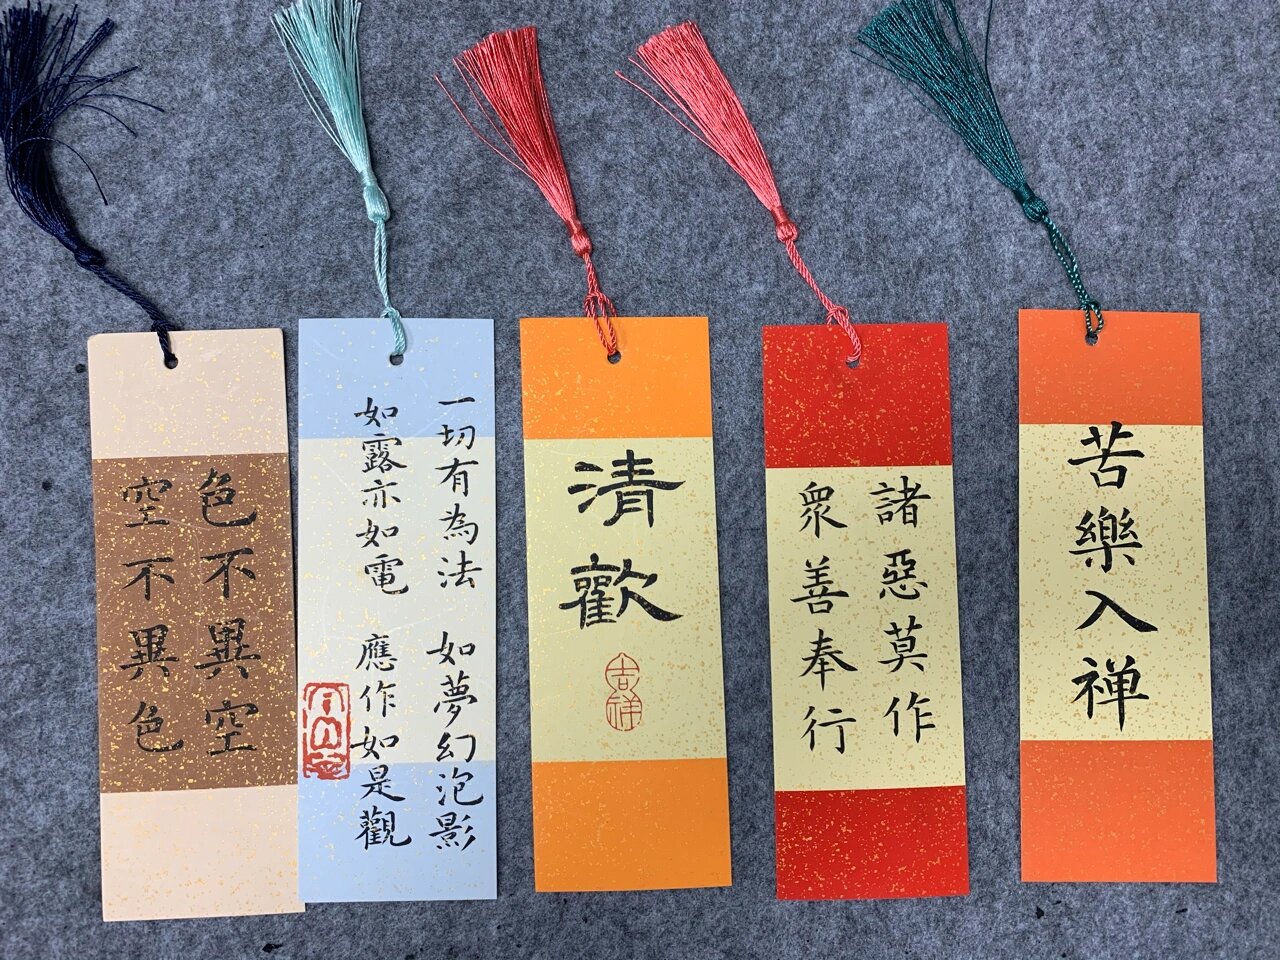 色不異空
空不異色
一切有為法 如夢幻泡影
如露亦如電 應作如是觀
清歡
吉祥
諸惡莫作
衆善奉行
苦樂入禅